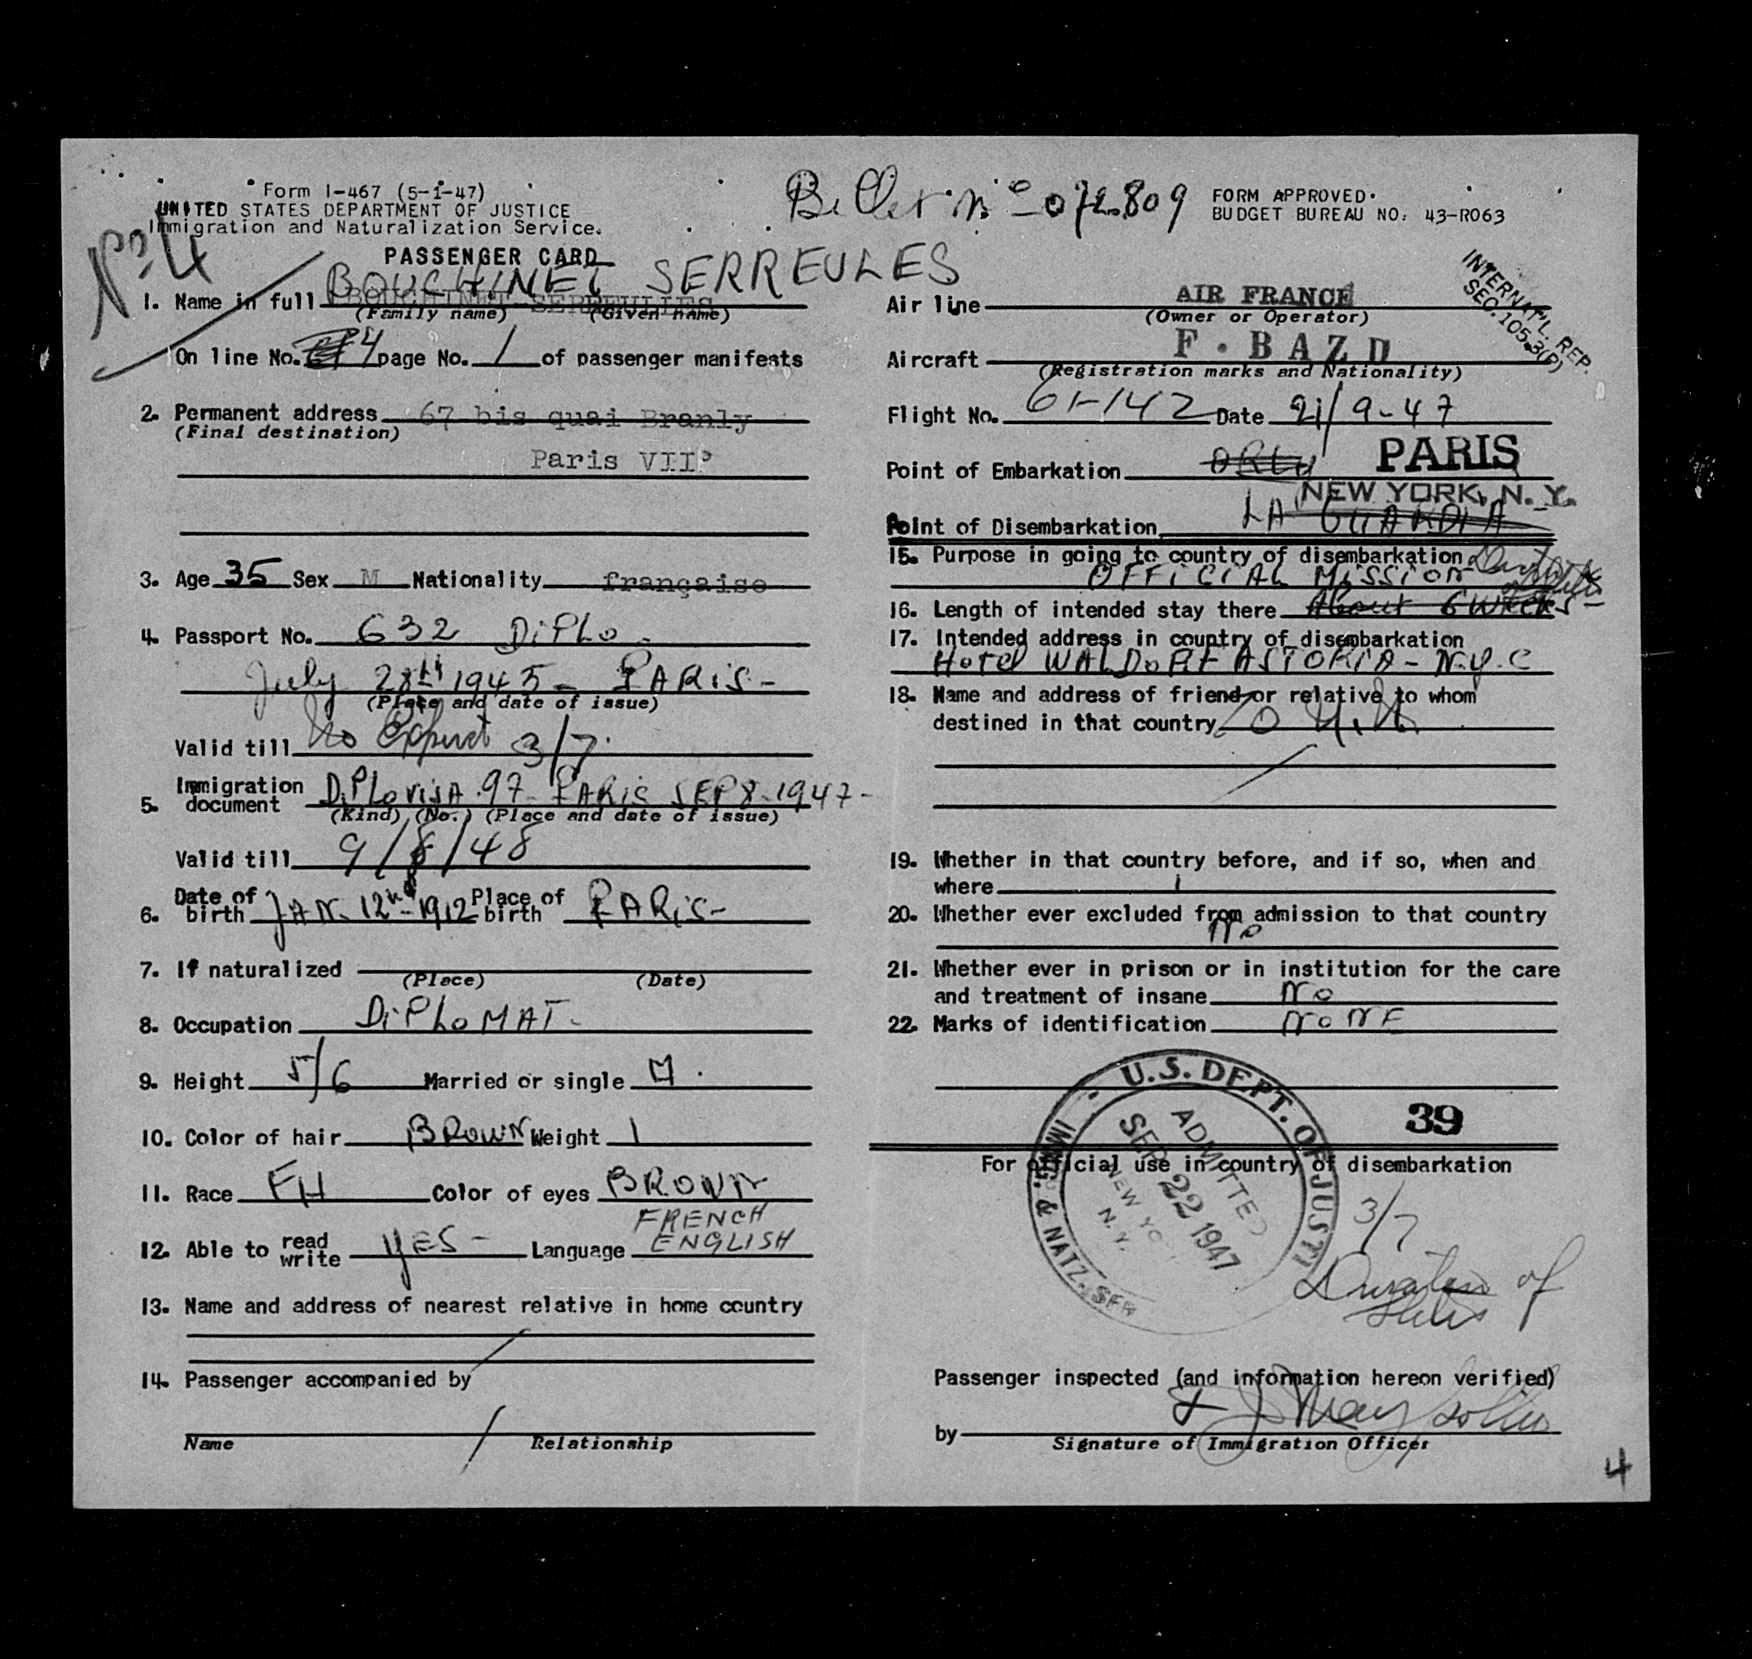 Form I-467 (5-1-47)
UNITED STATES DEPARTMENT OF JUSTICE
Immigration and Naturalization Service.
No 4
PASSENGER CARD
BOUCHINET SERREULES
1. Name in full BOUCHINET-SERREULLES
(Family name) (Given name)
On line No. 4 page No. 1 of passenger manifests
2. Permanent address 67 bis quai Branly
(Final destination)
Paris VII°
3. Age 35 Sex M Nationality française
4. Passport No. 632 DiPLo.
July 28th 1945 - PARiS -
(Place and date of issue)
Valid till No 3/7.
5. Immigration document DiPLo ViSA 97 - PARiS SEP 8 - 1947 -
(Kind) (No.) (Place and date of issue)
Valid till 9/8/48
6. Date of birth JAN. 12nd 1912 Place of birth PARiS -
7. If naturalized
(Place) (Date)
8. Occupation DiPLoMAT -
9. Height 5/6 Married or single M.
10. Color of hair BROWN Weight
11. Race FH Color of eyes BROWN
FRENCH
12. Able to read write YES - Language ENGLISH
13. Name and address of nearest relative in home country
14. Passenger accompanied by
Name Relationship
Billet n° 072.809
FORM APPROVED.
BUDGET BUREAU NO. 43-R063
INTERNAT'L. REP.
SEC. 105.3(P)
Air line AIR FRANCE
(Owner or Operator)
Aircraft F. BAZD
(Registration marks and Nationality)
Flight No. 61-142 Date 21/9-47
Point of Embarkation ORLY PARIS
NEW YORK, N. Y.
Point of Disembarkation LA GUARDIA
15. Purpose in going to country of disembarkation
OFFiCiAL MiSSiON
16. Length of intended stay there About 6 weeks -
17. Intended address in country of disembarkation
Hotel WALDoRF ASTORiA - N.Y.C
18. Name and address of friend or relative to whom
destined in that country
19. Whether in that country before, and if so, when and
where
20. Whether ever excluded from admission to that country
No
21. Whether ever in prison or in institution for the care
and treatment of insane No
22. Marks of identification NoNE
39
For official use in country of disembarkation
U.S. DEPT. OF JUSTI
IMMIG. & NATZ. SER
ADMITTED
SEP 22 1947
NEW YO
N. Y.
3/7
Duration of
Status
Passenger inspected (and information hereon verified)
by
Signature of Immigration Officer
4